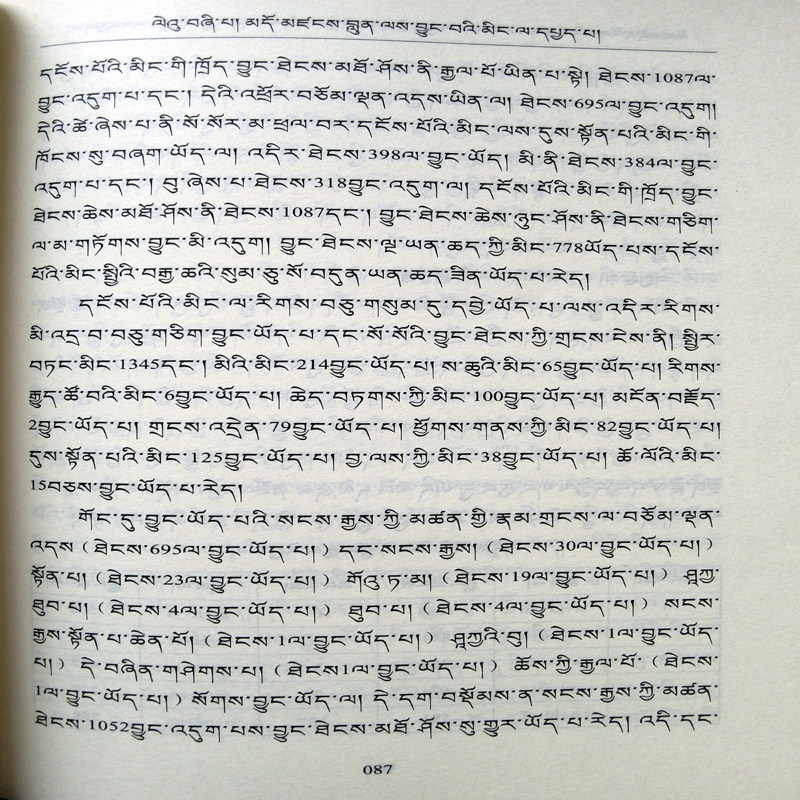 ལེའུ་བཞི་པ། མདོ་མཛངས་བླུན་ལས་བྱུང་བའི་མིང་ལ་དཔྱད་པ།
དངོས་པོའི་མིང་གི་ཁྲོད་བྱུང་ཐེངས་མཐོ་ཤོས་ནི་རྒྱལ་པོ་ཡིན་པ་སྟེ། ཐེངས་1087ལ་
བྱུང་འདུག་པ་དང་། དེའི་འཕྲོར་བཅོམ་ལྡན་འདས་ཡིན་ལ། ཐེངས་695ལ་བྱུང་འདུག།
དེའི་ཚེ་ཞེས་པ་ནི་སོ་སོར་མ་ཕྲལ་བར་དངོས་པོའི་མིང་ལས་དུས་སྟོན་པའི་མིང་གི་
ཁོངས་སུ་བཞག་ཡོད་ལ། འདིར་ཐེངས་398ལ་བྱུང་ཡོད། མི་ནི་ཐེངས་384ལ་བྱུང་
འདུག་པ་དང་། བུ་ཞེས་པ་ཐེངས་318བྱུང་འདུག་ལ། དངོས་པོའི་མིང་གི་ཁྲོད་བྱུང་
ཐེངས་ཆེས་མཐོ་ཤོས་ནི་ཐེངས་1087དང་། བྱུང་ཐེངས་ཆེས་ཉུང་ཤོས་ནི་ཐེངས་གཅིག་
ལ་མ་གཏོགས་བྱུང་མི་འདུག། བྱུང་ཐེངས་ལྔ་ཡན་ཆད་ཀྱི་མིང་778ཡོད་པས་དངོས་
པོའི་མིང་སྤྱིའི་བརྒྱ་ཆའི་སུམ་ཅུ་སོ་བདུན་ཡན་ཆད་ཟིན་ཡོད་པ་རེད།
དངོས་པོའི་མིང་ལ་རིགས་བཅུ་གསུམ་དུ་དབྱེ་ཡོད་པ་ལས་འདིར་རིགས་
མི་འདྲ་བ་བཅུ་གཅིག་བྱུང་ཡོད་པ་དང་སོ་སོའི་བྱུང་ཐེངས་ཀྱི་གྲངས་ངེས་ནི། སྤྱིར་
བཏང་མིང་1345དང་། མིའི་མིང་214བྱུང་ཡོད་པ། ས་ཆུའི་མིང་65བྱུང་ཡོད་པ། རིགས་
རྒྱུད་ཚོ་བའི་མིང་6བྱུང་ཡོད་པ། ཆེད་བཏགས་ཀྱི་མིང་100བྱུང་ཡོད་པ། མངོན་བརྗོད་
2བྱུང་ཡོད་པ། གྲངས་འདྲེན་79བྱུང་ཡོད་པ། ཕྱོགས་གནས་ཀྱི་མིང་82བྱུང་ཡོད་པ།
དུས་སྟོན་པའི་མིང་125བྱུང་ཡོད་པ། བྱ་ལས་ཀྱི་མིང་38བྱུང་ཡོད་པ། ཚོ་ལོའི་མིང་
15བཅས་བྱུང་ཡོད་པ་རེད།
གོང་དུ་བྱུང་ཡོད་པའི་སངས་རྒྱས་ཀྱི་མཚན་གྱི་རྣམ་གྲངས་ལ་བཅོམ་ལྡན་
འདས（ཐེངས་695ལ་བྱུང་ཡོད་པ།）དང་སངས་རྒྱས།（ཐེངས་30ལ་བྱུང་ཡོད་པ།）
སྟོན་པ།（ཐེངས་23ལ་བྱུང་ཡོད་པ།）གོའུ་ཏ་མ།（ཐེངས་19ལ་བྱུང་ཡོད་པ།）ཤཱཀྱ་
ཐུབ་པ།（ཐེངས་4ལ་བྱུང་ཡོད་པ།）ཐུབ་པ།（ཐེངས་4ལ་བྱུང་ཡོད་པ།）སངས་
རྒྱས་སྟོན་པ་ཆེན་པོ།（ཐེངས་1ལ་བྱུང་ཡོད་པ།）ཤཱཀྱའི་བུ།（ཐེངས་1ལ་བྱུང་ཡོད་
པ།）དེ་བཞིན་གཤེགས་པ།（ཐེངས1ལ་བྱུང་ཡོད་པ།）ཆོས་ཀྱི་རྒྱལ་པོ་（ཐེངས་
1ལ་བྱུང་ཡོད་པ།）སོགས་བྱུང་ཡོད་ལ། དེ་དག་བསྡོམས་ན་སངས་རྒྱས་ཀྱི་མཚན་
ཐེངས་1052བྱུང་འདུག་པས་བྱུང་ཐེངས་མཐོ་ཤོས་སུ་གྱུར་ཡོད་པ་རེད། འདི་དང་
087